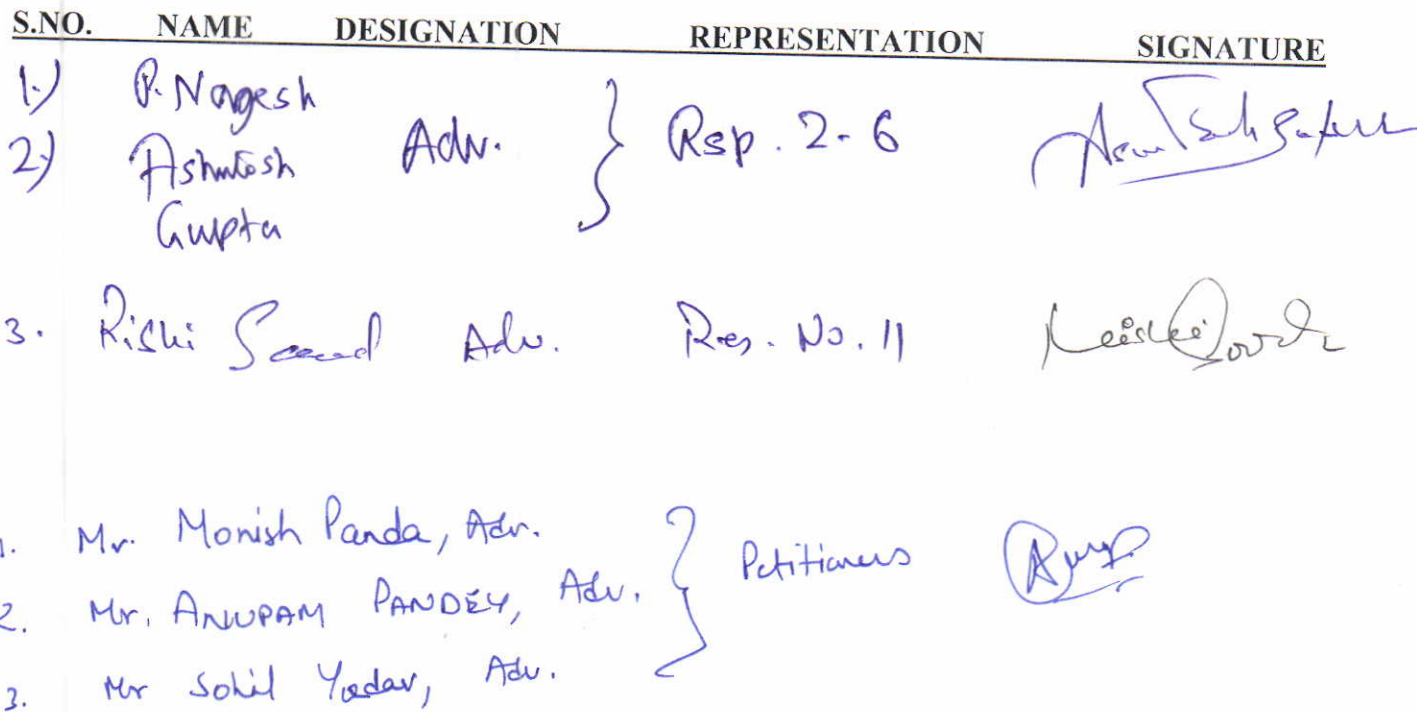 S.NO. NAME DESIGNATION REPRESENTATION SIGNATURE
1.) P. Nagesh
2.) Ashutosh Adv. } Rsp. 2-6
Gupta
3. Rishi Sood Adv. Res. No. 11
1. Mr. Monish Panda, Adv.
2. Mr. ANUPAM PANDEY, Adv. } Petitioners
3. Mr Sohil Yadav, Adv.